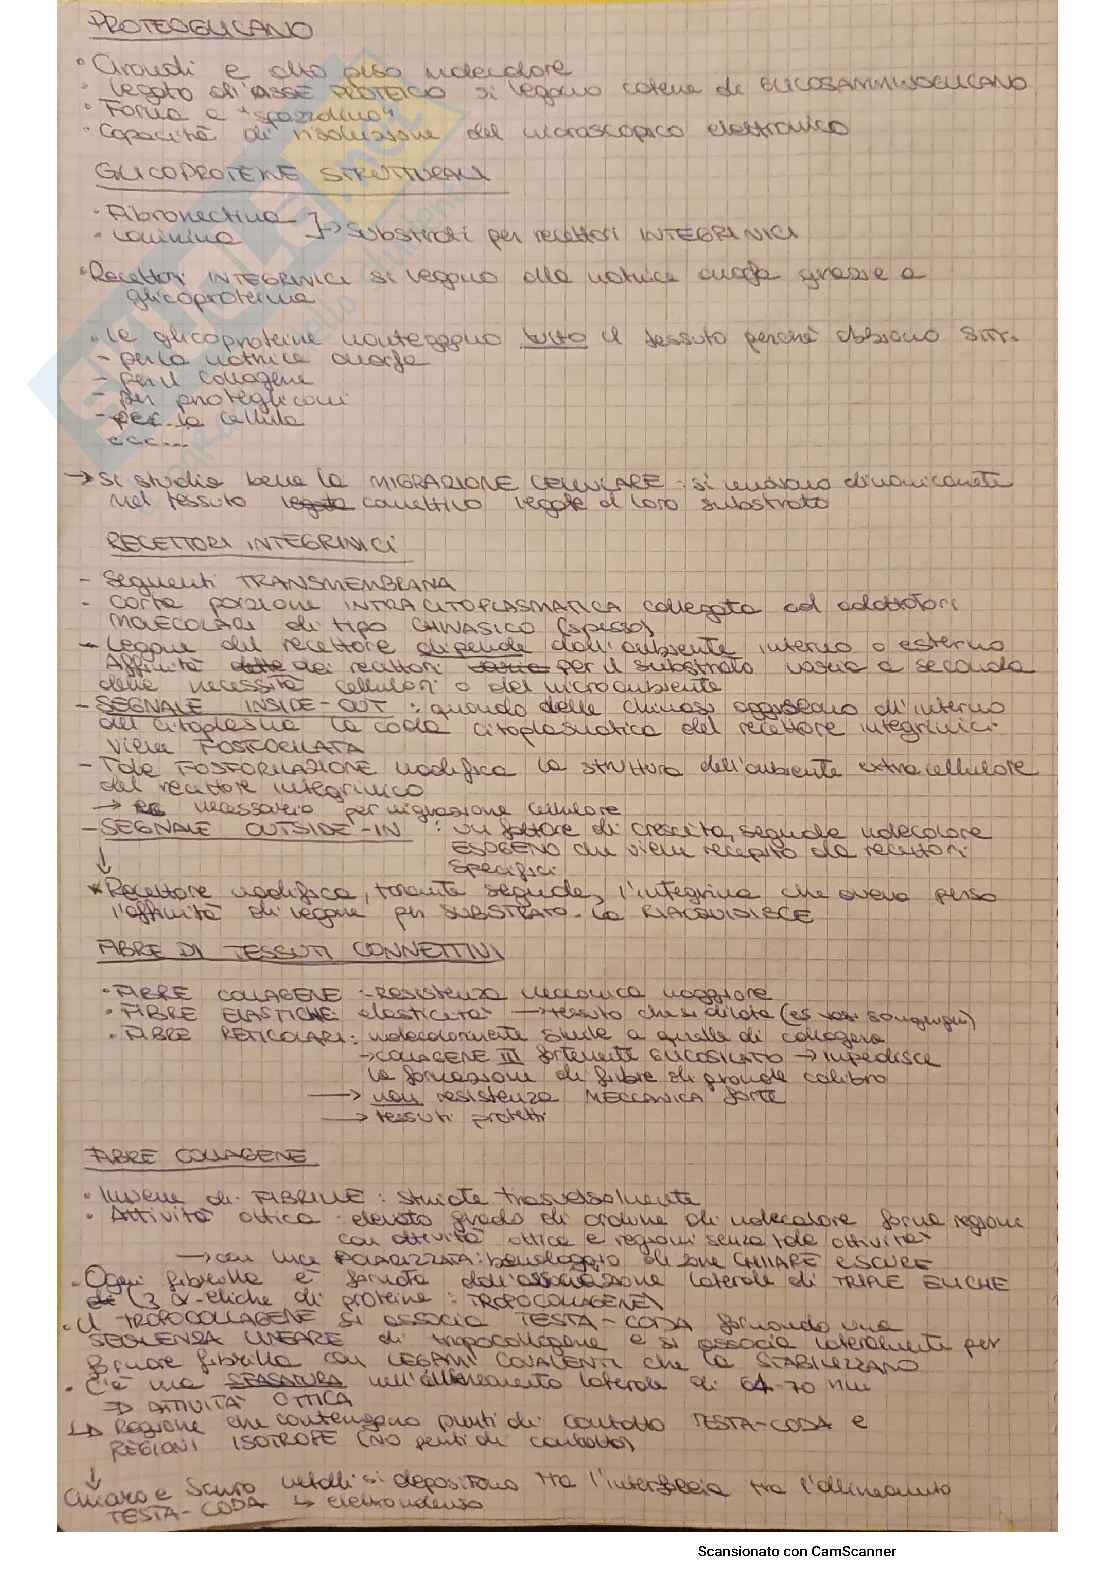 PROTEOGLICANO
• Grandi e alto peso molecolare
• legato all'ASSE PROTEICO si legano catene di GLICOSAMMINOGLICANO
• Forma a "spazzolino"
• Capacità di risoluzione del microscopico elettronico
GLICOPROTEINE STRUTTURALI
• Fibronectina
• Laminina
→ Substrati per recettori INTEGRINICI
• Recettori INTEGRINICI si legano alla matrice amorfa grazie a
glicoproteina
• le glicoproteine mantengono tutto il tessuto perché abbiamo siti.
- per la matrice amorfa
- per il collagene
- per proteglicani
- per la cellula
ecc....
→ Si studia bene la MIGRAZIONE CELLULARE: si muovono dinamicamente
nel tessuto connettivo legate al loro substrato
RECETTORI INTEGRINICI
- Segmenti TRANSMEMBRANA
- Corta porzione INTRACITOPLASMATICA collegata ad adattatori
MOLECOLARI di tipo CHINASICO (spesso)
- Legame del recettore dipende dall'ambiente interno o esterno
Affinità dei recettori per il substrato varia a seconda
delle necessità cellulari o del microambiente
- SEGNALE INSIDE-OUT: quando delle chinasi aggiscono all'interno
del citoplasma la coda citoplasmatica del recettore integrinici
viene FOSFORILATA
- Tale FOSFORILAZIONE modifica la struttura dell'ambiente extracellulare
del recettore integrinico
→ necessario per migrazione cellulare
- SEGNALE OUTSIDE-IN: un fattore di crescita, segnale molecolare
ESOGENO che viene recepito da recettori
specifici
↓
* Recettore modifica, tramite segnale, l'integrina che aveva perso
l'affinità di legame per SUBSTRATO - la RIACQUISISCE
FIBRE DI TESSUTI CONNETTIVI
• FIBRE COLLAGENE - Resistenza meccanica maggiore
• FIBRE ELASTICHE: elasticità → tessuto che si dilata (es vasi sanguigni)
• FIBRE RETICOLARI: molecolarmente simile a quelle di collagene
→ COLLAGENE III fortemente GLICOSILATO → impedisce
la formazione di fibre di grande calibro
→ non resistenza MECCANICA forte
→ tessuti protetti
FIBRE COLLAGENE
• Insieme di FIBRILLE: striate trasversalmente
• Attività ottica: elevato grado di ordine di molecolare forma regione
con attività ottica e regioni senza tale attività
→ con luce POLARIZZATA: bandeggio di zone CHIARE e SCURE
• Ogni fibrilla è formata dall'associazione laterale di TRIPLE ELICHE
(3 α-eliche di proteine: TROPOCOLLAGENE)
• Il TROPOCOLLAGENE si associa TESTA-CODA formando una
SEQUENZA LINEARE di tropocollagene e si associa lateralmente per
formare fibrilla con LEGAMI COVALENTI che la STABILIZZANO
• C'è una SFASATURA nell'allineamento laterale di 64-70 nm
⇒ ATTIVITÀ OTTICA
↳ Regione che contengono punti di contatto TESTA-CODA e
REGIONI ISOTROPE (NO punti di contatto)
↓
Chiaro e Scuro metalli si depositano tra l'interfaccia tra l'allineamento
TESTA-CODA ↳ elettrondenso
Scansionato con CamScanner